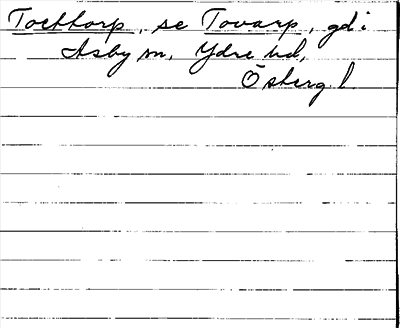 Toettorp, se Tovarp, gd i
Asby sn, Ydre hd,
Österg. l